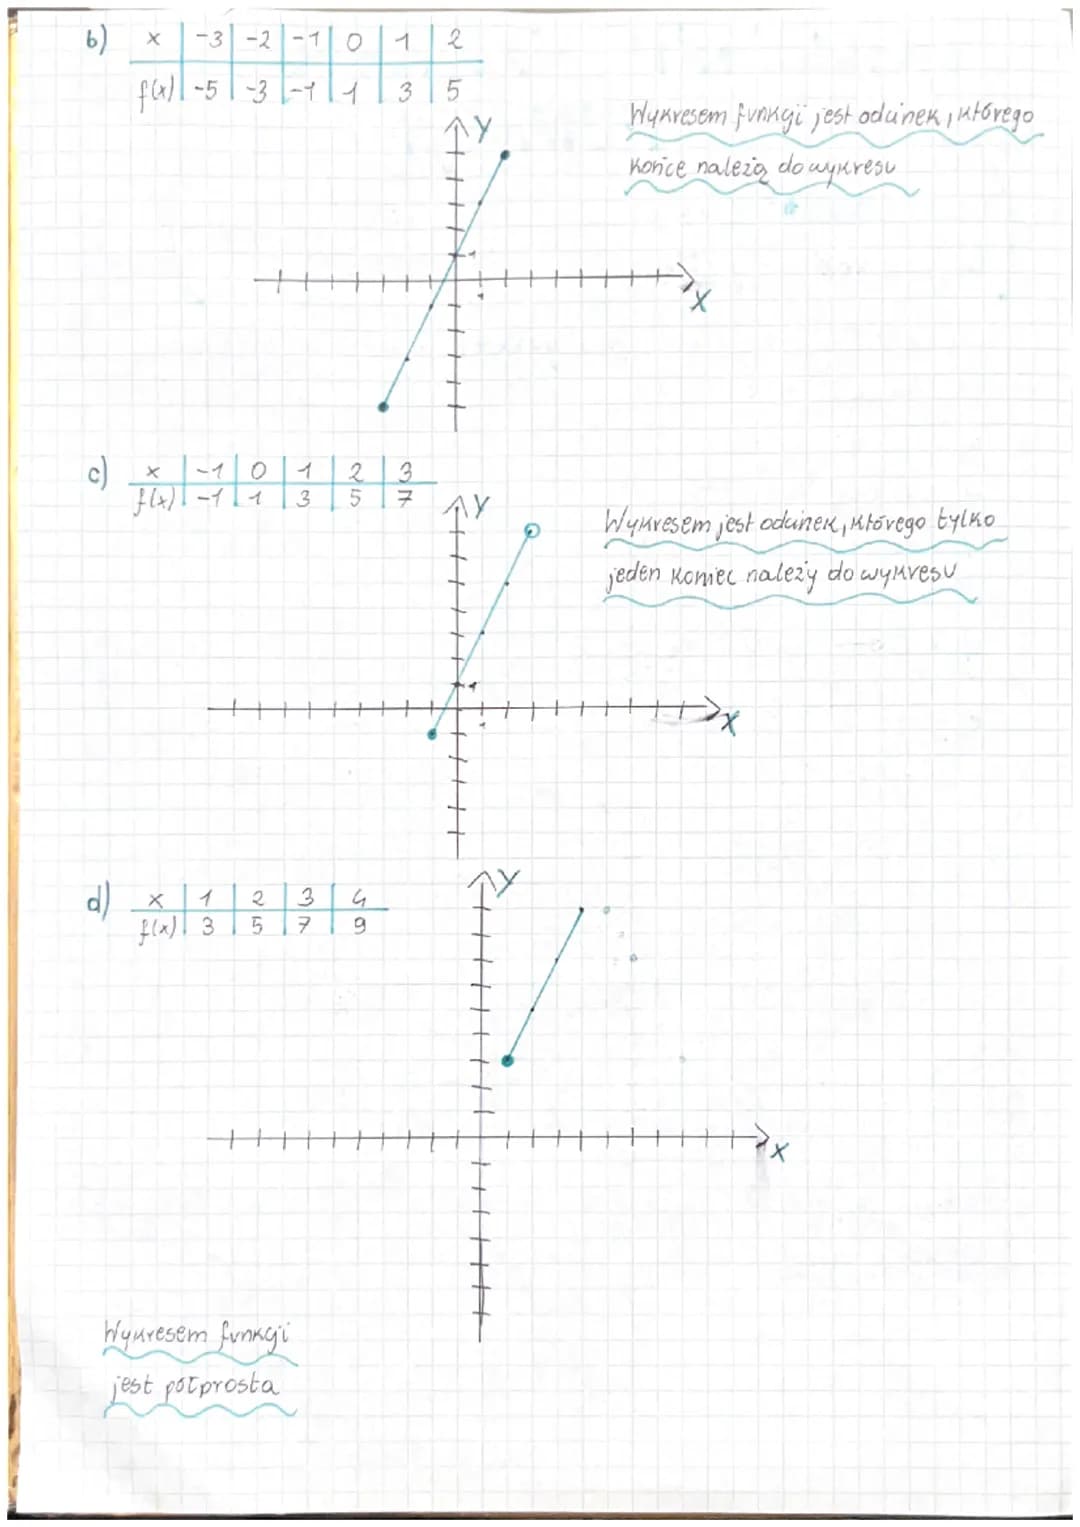 b) x -3 -2 -1 0 1 2
f(x) -5 -3 -1 1 3 5
Y
Wykresem funkcji jest odcinek, którego
końce należą do wykresu
1
1
X
c) x -1 0 1 2 3
f(x) -1 1 3 5 7
Y
Wykresem jest odcinek, którego tylko
jeden koniec należy do wykresu
1
1
X
d) x 1 2 3 4
f(x) 3 5 7 9
Y
X
Wykresem funkcji
jest półprosta